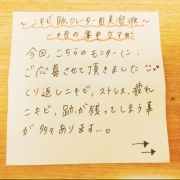 〜ニキビ跡クレーター用美容液〜
今回、こちらのモニターに、
ご応募させて頂きました
くり返しニキビ、ストレス、疲れ
ニキビ、跡が残ってしまう事
が多々あります…。